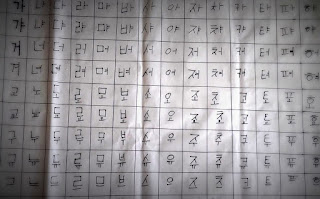 가 나 다 라 마 바 사 아 자 차 카 타 파 하
갸 냐 댜 랴 먀 뱌 샤 야 쟈 챠 캬 탸 퍄 햐
거 너 더 러 머 버 서 어 저 처 커 터 퍼 허
겨 녀 뎌 려 며 벼 셔 여 져 쳐 켜 텨 펴 혀
고 노 도 로 모 보 소 오 조 초 코 토 포 호
교 뇨 됴 료 묘 뵤 쇼 요 죠 쵸 쿄 툐 표 효
구 누 두 루 무 부 수 우 주 추 쿠 투 푸 후
규 뉴 듀 류 뮤 뷰 슈 유 쥬 츄 큐 튜 퓨 휴
그 느 드 르 므 브 스 으 즈 츠 크 트 프 흐